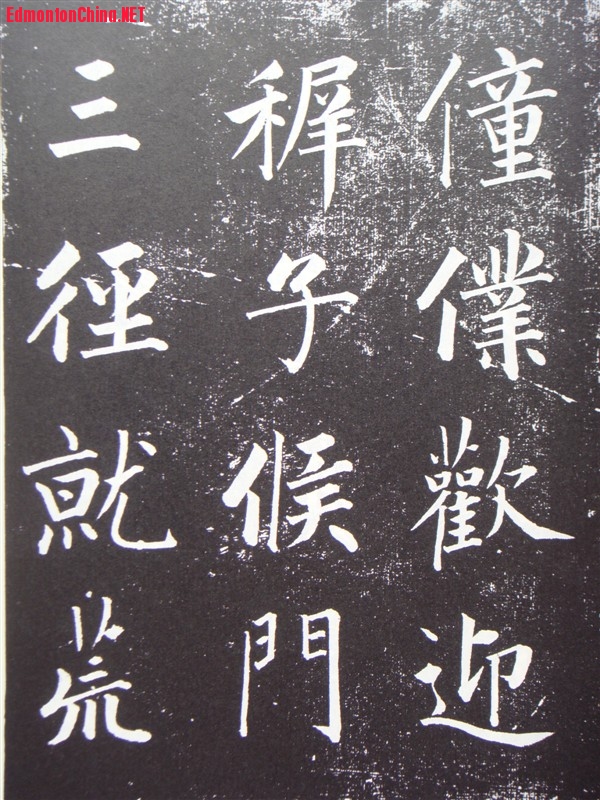 EdmontonChina.NET
僮僕歡迎
稺子候門
三徑就荒